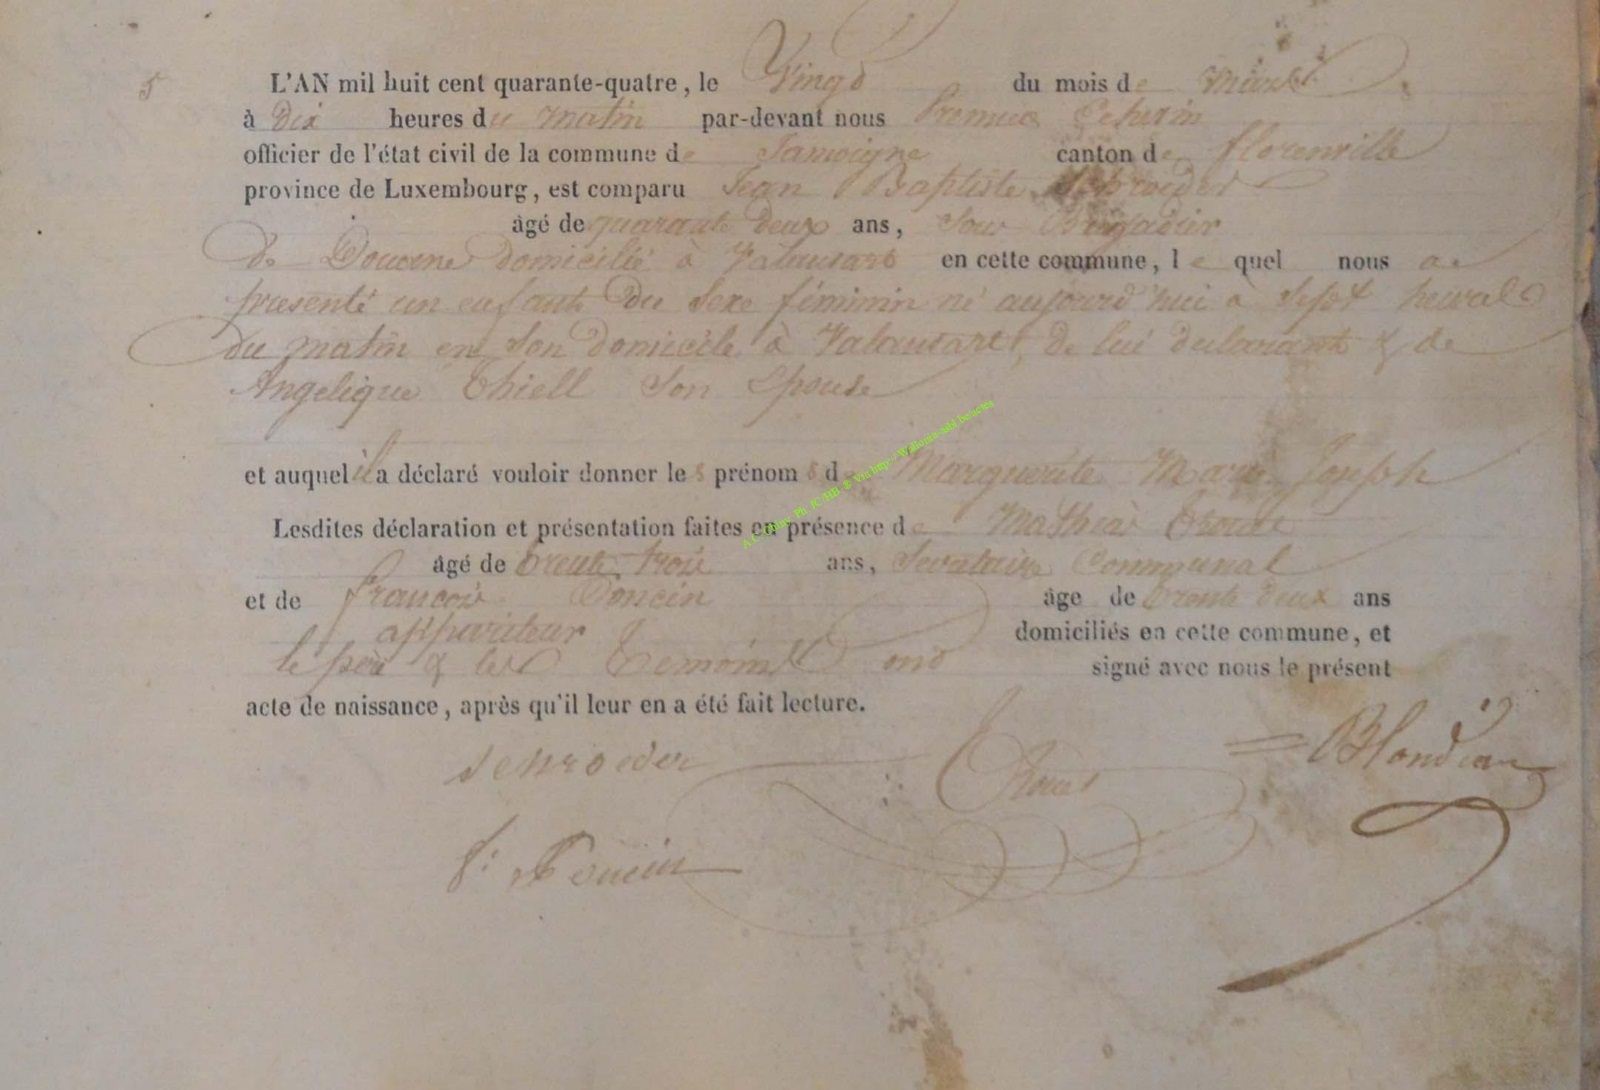 5
L'AN mil huit cent quarante-quatre, le Vingt du mois de Mars
à dix heures du matin par-devant nous Premier Echevin
officier de l'état civil de la commune de Jamoigne canton de florenville
province de Luxembourg, est comparu Jean Baptiste Schroeder
âgé de quarante deux ans, Sous Brigadier
de Douane domicilié à Valansart en cette commune, le quel nous a
présenté un enfant du Sexe féminin né aujourd'hui à Sept heures
du matin en Son domicile à Valansart, de lui declarant & de
Angelique Thiell Son Epouse
et auquel il a déclaré vouloir donner les prénoms de Marguerite Marie Joseph
Lesdites déclaration et présentation faites en présence de Mathias
âgé de trente trois ans, Secretaire Communal
et de françois Poncin âgé de trente deux ans
appariteur domiciliés en cette commune, et
le père & les Temoins ont signé avec nous le présent
acte de naissance, après qu'il leur en a été fait lecture.
schroeder Blondiau
f: Poncin